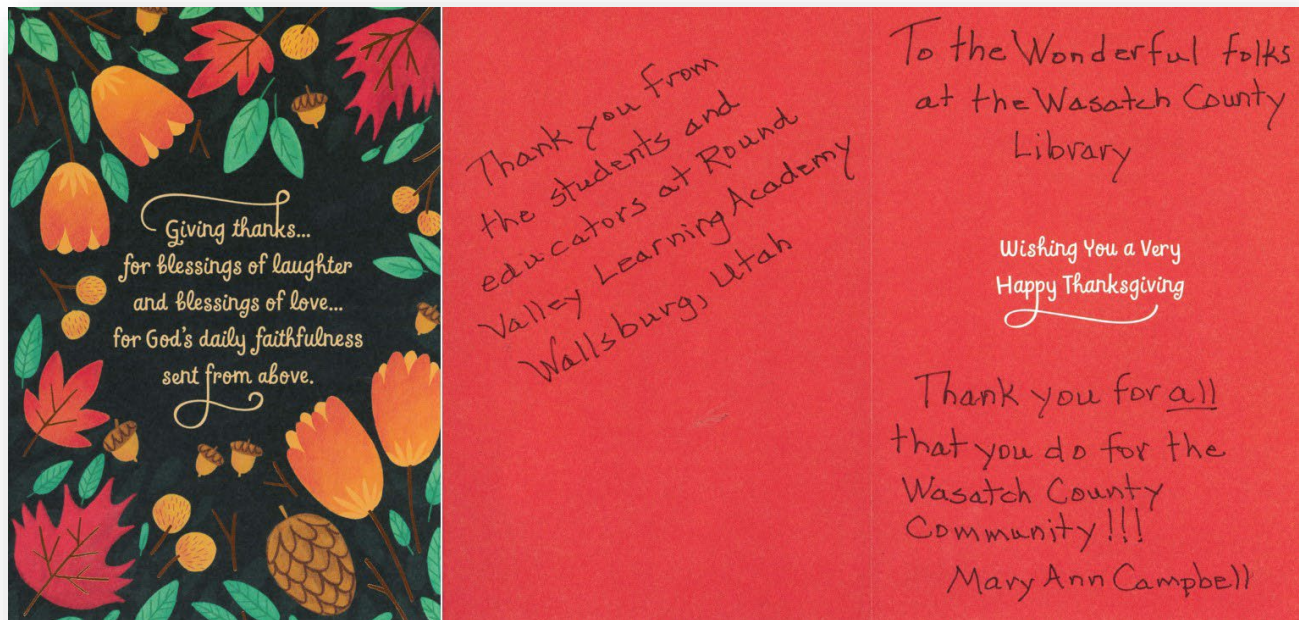 Giving thanks...
for blessings of laughter
and blessings of love...
for God's daily faithfulness
sent from above.
Thank you from
the students and
educators at Round
Valley Learning Academy
Wallsburg, Utah
To the Wonderful folks
at the Wasatch County
Library
Wishing You a Very
Happy Thanksgiving
Thank you for all
that you do for the
Wasatch County
Community!!!
Mary Ann Campbell